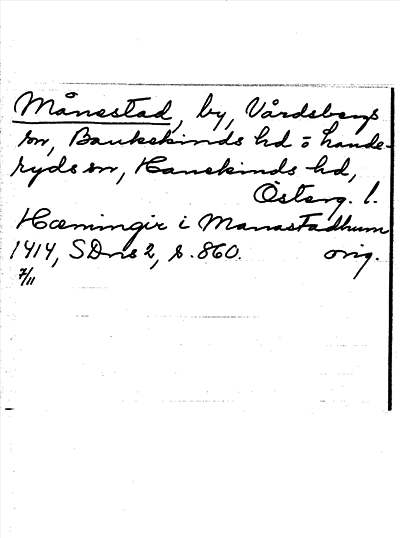 Månestad, by, Vårdsbergs
sn, Bankekinds hd o Lande-
ryds sn, Hanekinds hd,
Österg. l.
Hæmingir i Manastadhum
1414, SDns 2, s. 860. orig.
7/11